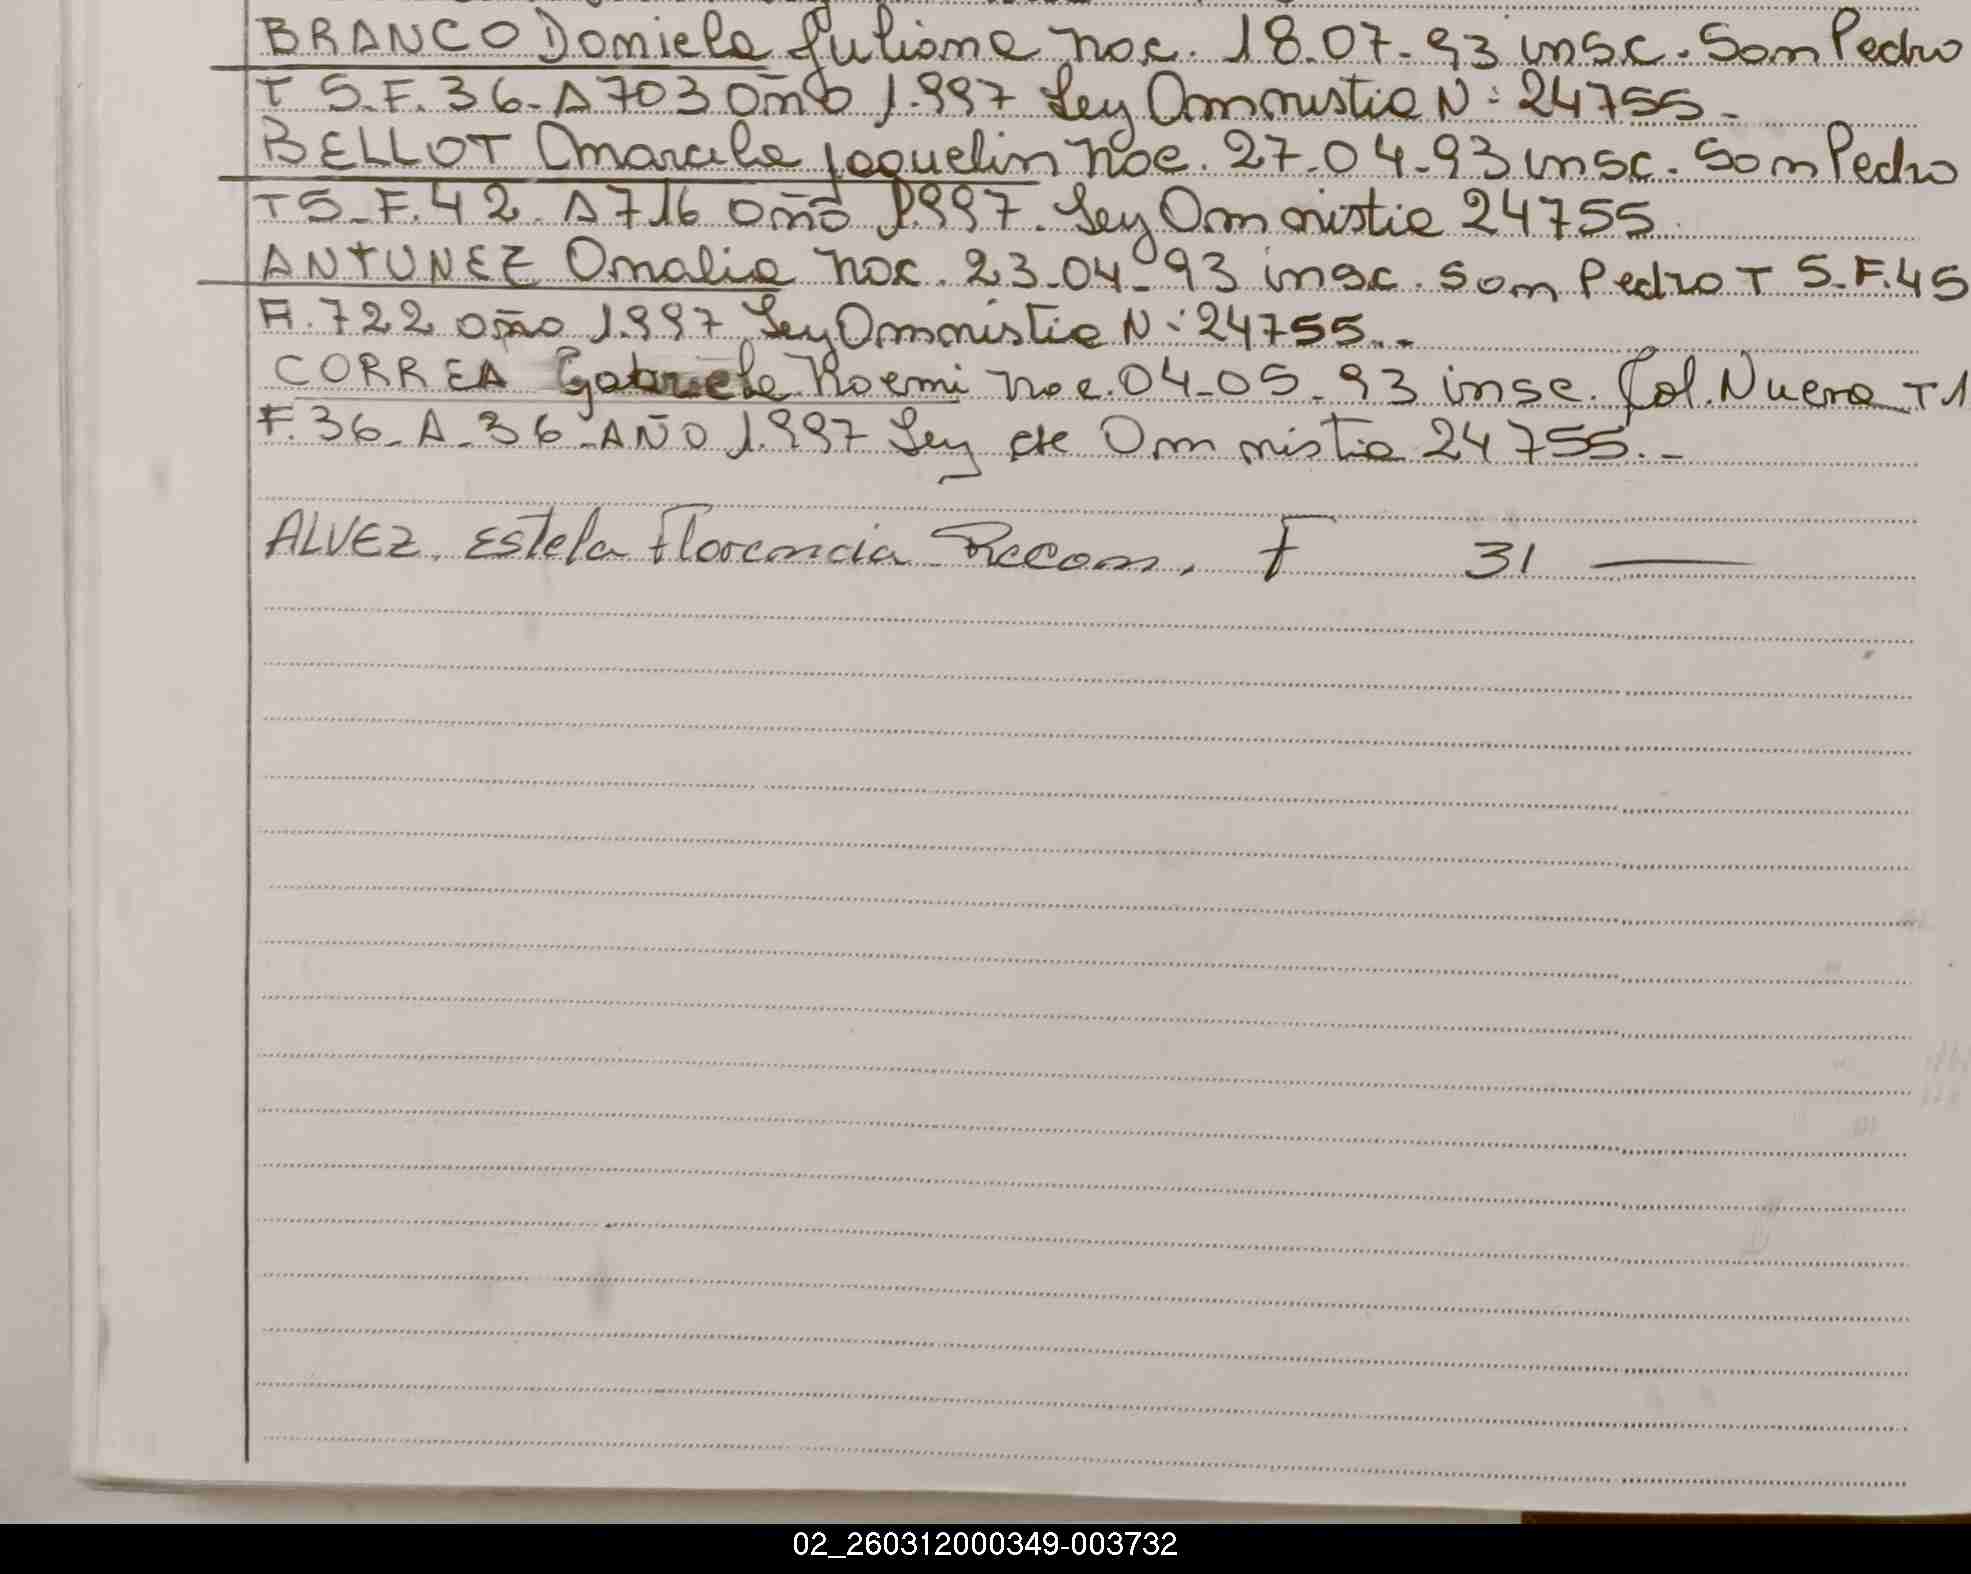 BRANCO Daniela Juliana nac. 18.07-93 insc. San Pedro
T 5.F.36-A703 año 1.997 Ley Amnistia N: 24755-
BELLOT Marcela Jaquelin nac. 27-04-93 insc. San Pedro
T5-F.42-A716 año 1.997. Ley Amnistia 24755.
ANTUNEZ Analia nac. 23-04-93 insc. San Pedro T 5-F.45
A.722 año 1.997 Ley Amnistia N: 24755..
CORREA Gabriela Noemi nac. 04-05-93 insc. Col. Nueva T1
F.36-A-36-AÑO 1.997 Ley de Amnistia 24755.-
ALVEZ, Estela Florencia Recon. F 31 —
02_260312000349-003732